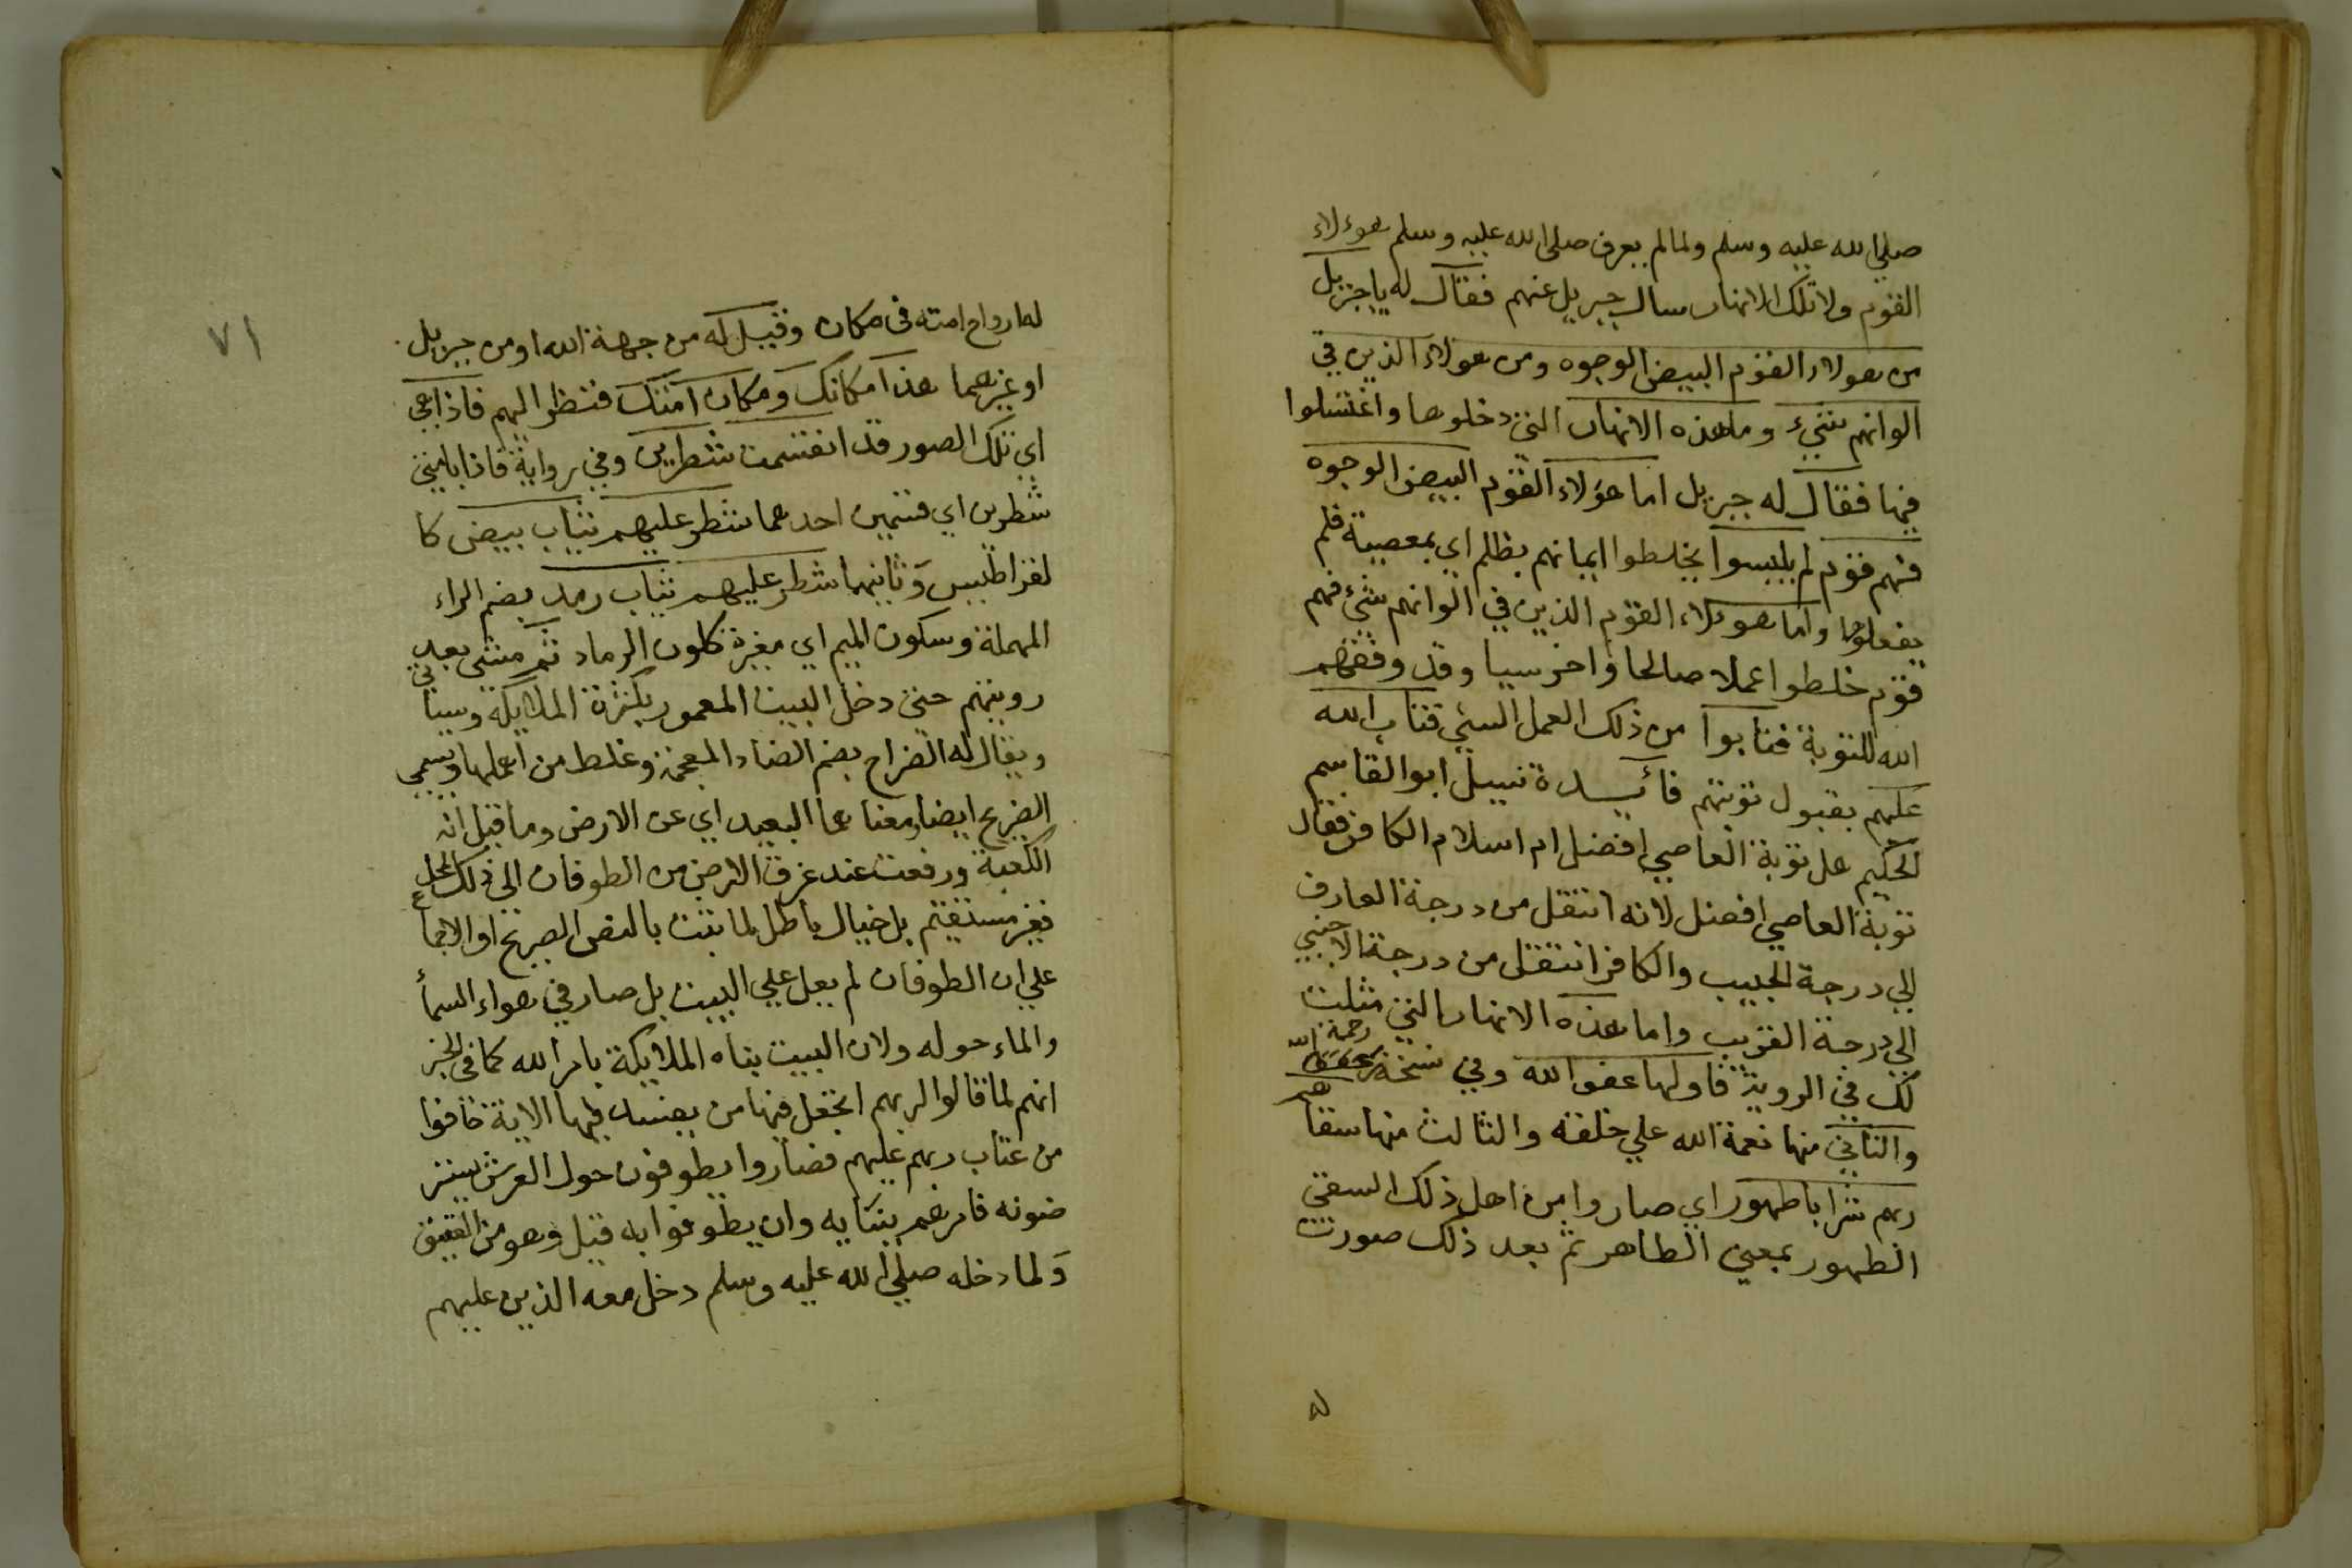 صلي الله عليه وسلم ولما لم يعرف صلي الله عليه وسلم هوءلاء
القوم ولا تلك الانهار سال جبريل عنهم فقال له يا جبريل
من هولاء القوم البيض الوجوه ومن هولاء الذين في
الوانهم شيء وما هذه الانهار التي دخلوها واغتسلوا
فيها فقال له جبريل اما هؤلاء القوم البيض الوجوه
فهم قوم لم يلبسوا يخلطوا ايمانهم بظلم اي بمعصية فلم
يفعلوها واما هولاء القوم الذين في الوانهم شيء فهم
قوم خلطوا عملا صالحا واخر سيا وقد وفقهم
الله للتوبة فتابوا من ذلك العمل السيئ فتاب الله
عليهم بقبول توبتهم فائدة سيل ابو القاسم
الحكيم هل توبة العاصي افضل ام اسلام الكافر فقال
توبة العاصي افضل لانه انتقل من درجة العارف
الي درجة الحبيب والكافر انتقل من درجة الاجنبي
الي درجة القريب واما هذه الانهار التي مثلت
لك في الروية فاولها عفو الله وفي نسخة رحمة الله
والثاني منها نعمة الله علي خلقه والثالث منها سقا هم
ربهم شرابا طهورا اي صاروا من اهل ذلك السقي
الطهور بمعني الطاهر ثم بعد ذلك صورت
له
٧١
له ارواح امته في مكان وقيل له من جهة الله او من جبريل
او غيرهما هذا مكانك ومكان امتك فنظر اليهم فاذا هي
اي تلك الصور قد انقسمت شطرين وفي رواية فاذا بامتي
شطرين اي قسمين احدهما شطر عليهم ثياب بيض كا
لقراطيس وثانيهما شطر عليهم ثياب رمد بضم الراء
المهملة وسكون الميم اي مغبرة كلون الرماد ثم مشي بعد
رويتهم حتي دخل البيت المعمور بكثرة الملايكة وسياتي
ويقال له الضراح بضم الضاد المعجمة وغلط من اهملها ويسمي
الضريح ايضا ومعناهما البعيد اي عن الارض وما قيل انه
الكعبة ورفعت عند غرق الارض من الطوفان الي ذلك المحل
فغير مستقيم بل خيال باطل لما ثبت بالنص الصريح او الاجماع
علي ان الطوفان لم يعل علي البيت بل صار في هواء السما
والماء حوله ولان البيت بناه الملايكة بامر الله كما في الخبر
انهم لما قالوا لربهم اتجعل فيها من يفسد فيها الاية خافوا
من عتاب ربهم عليهم فصاروا يطوفون حول العرش يستر
ضونه فامرهم ببنايه وان يطوفوا به قيل وهو من العقيق
ولما دخله صلي الله عليه وسلم دخل معه الذين عليهم